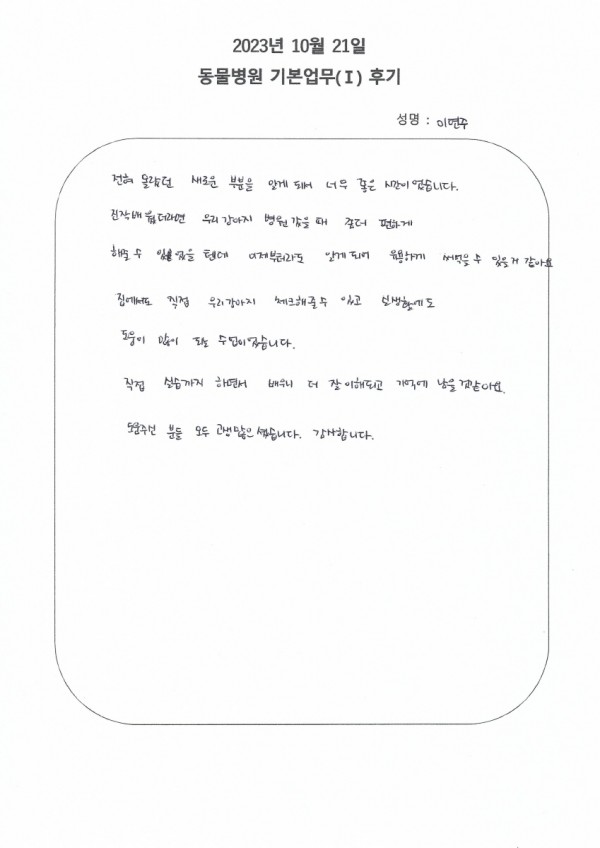 2023년 10월 21일
동물병원 기본업무(I) 후기
성명 : 이연주
전혀 몰랐던 새로운 부분을 알게 돼서 너무 좋은 시간이였습니다.
진작 배웠더라면 우리 강아지 병원 갔을 때 좀더 편하게
해줄 수 있었을 텐데 이제부터라도 알게 되어 유용하게 써먹을 수 있을 거 같아요
집에서도 직접 우리 강아지 체크해줄 수 있고 실생활에도
도움이 많이 되는 수업이였습니다.
직접 실습까지 하면서 배우니 더 잘 이해되고 기억에 남을 것 같아요.
도움주신 분들 모두 고생많으셨습니다. 감사합니다.